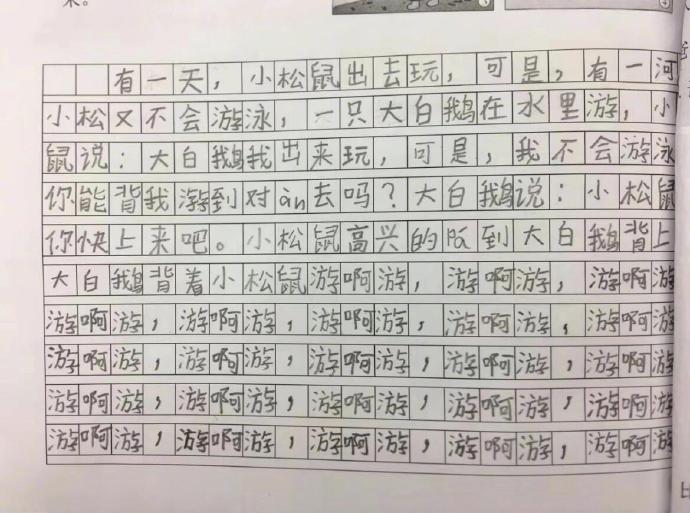 有一天，小松鼠出去玩，可是，有一河
小松又不会游泳，一只大白鹅在水里游，小
鼠说：大白鹅我出来玩，可是，我不会游泳
你能背我游到对àn去吗？大白鹅说：小松鼠
你快上来吧。小松鼠高兴的队到大白鹅背上
大白鹅背着小松鼠游啊游，游啊游，游啊游
游啊游，游啊游，游啊游，游啊游，游啊游
游啊游，游啊游，游啊游，游啊游，游啊游
游啊游，游啊游，游啊游，游啊游，游啊游
游啊游，游啊游，游啊游，游啊游，游啊游